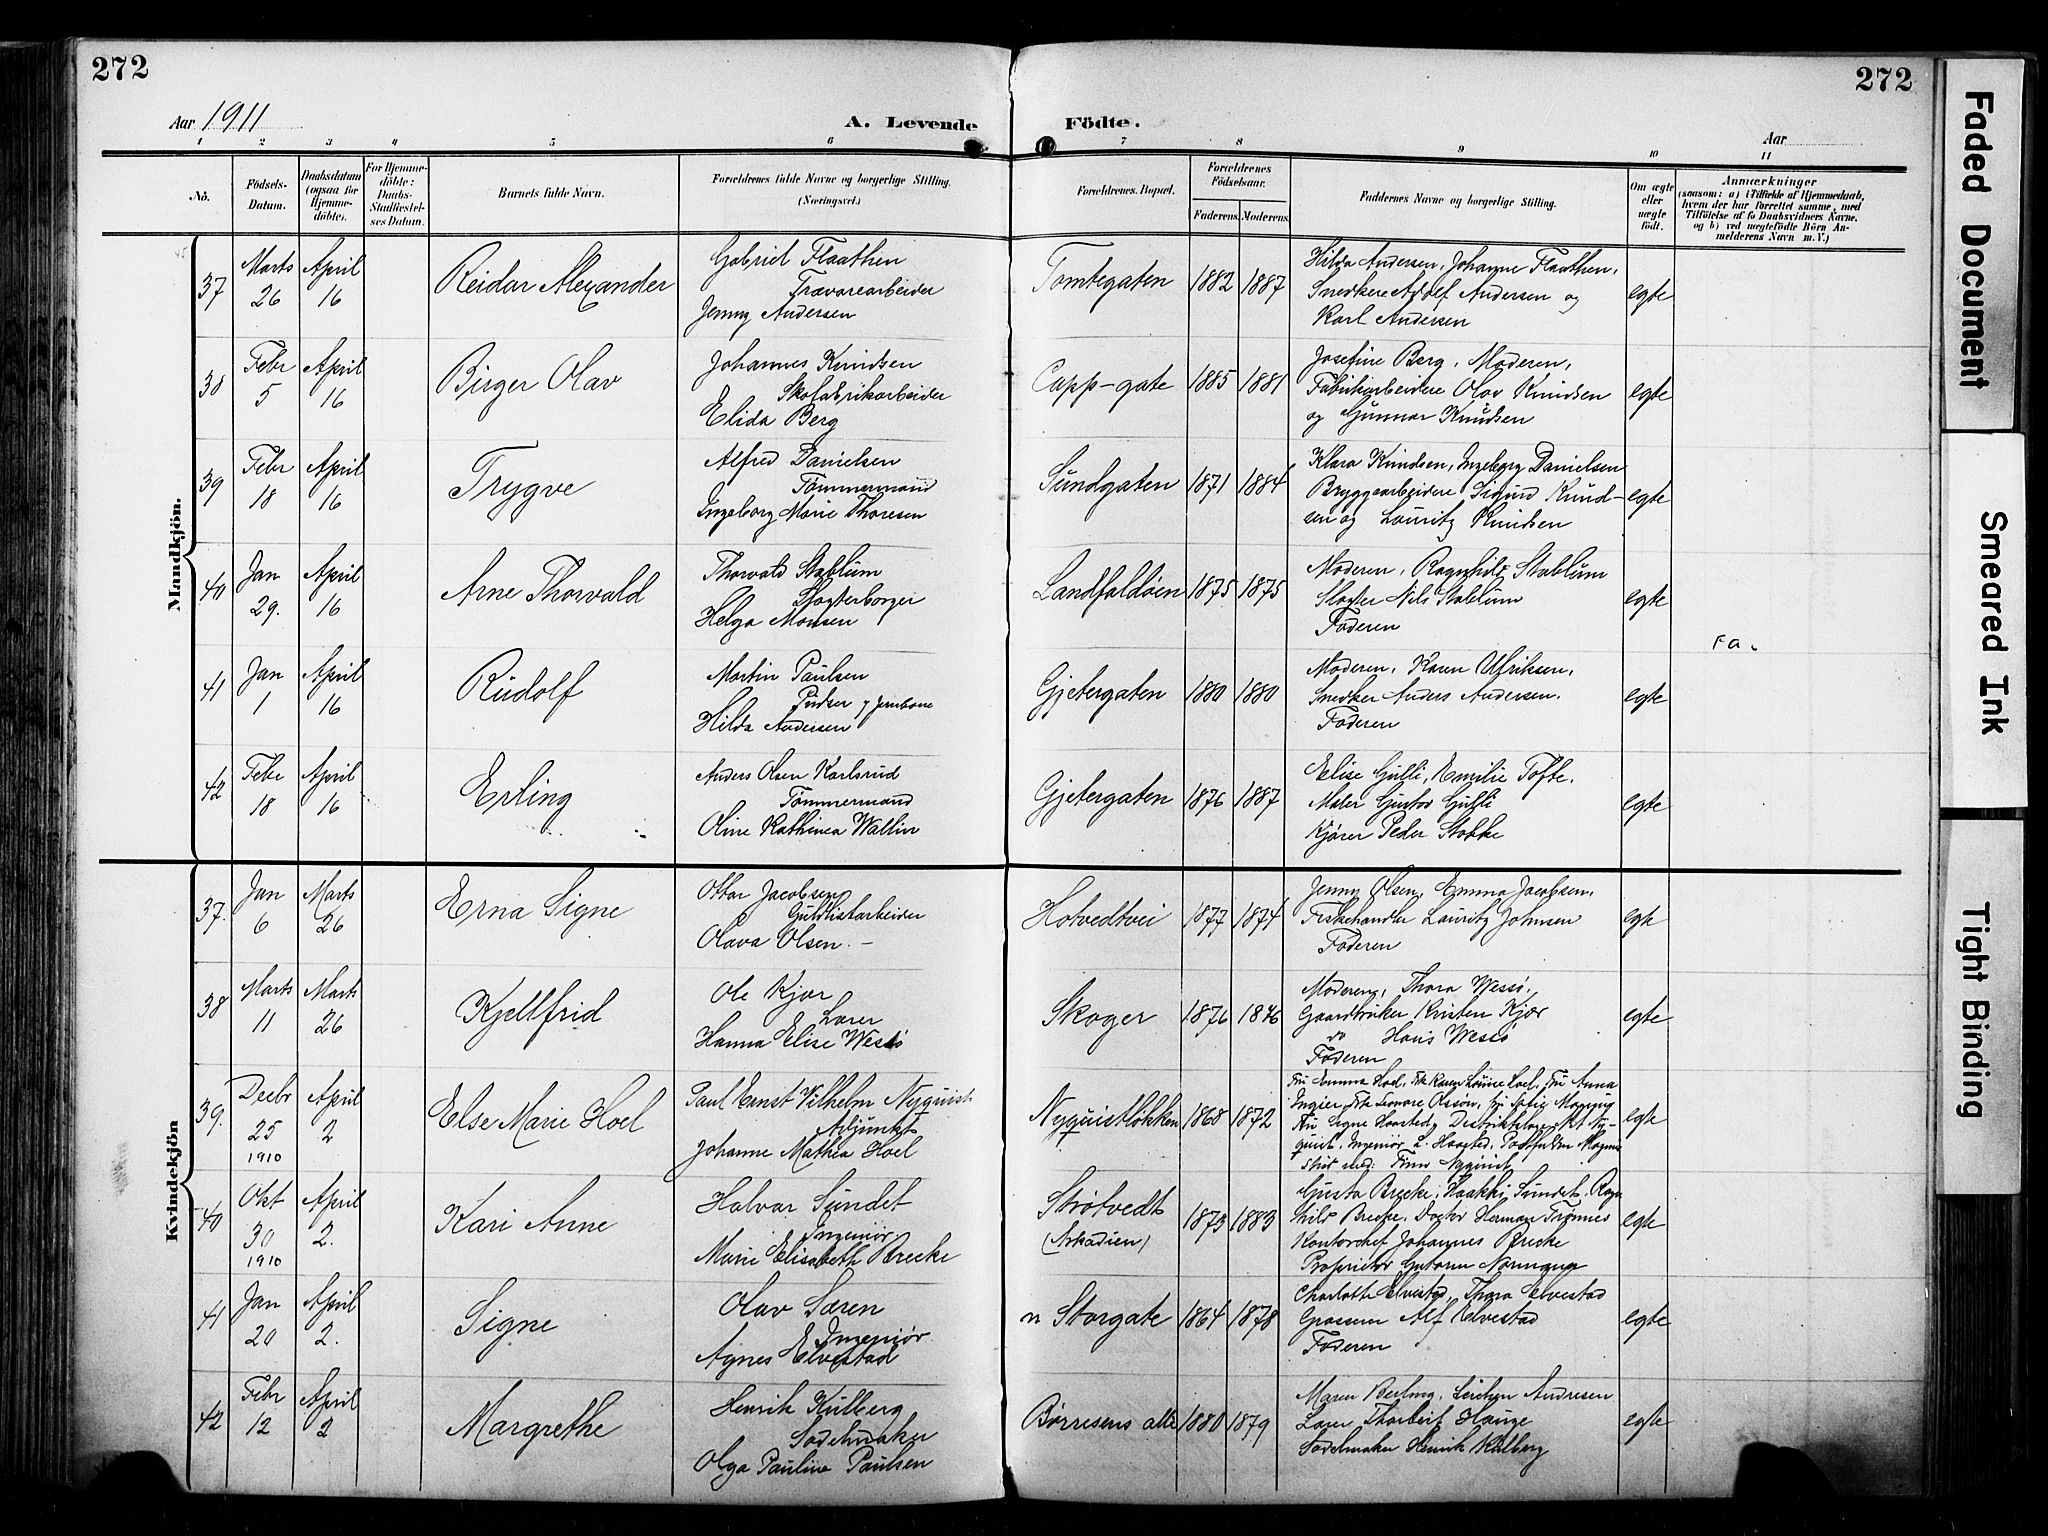 272
272
Aar 1911
A. Levende
Födte.
Aar
1 2 3 4 5 6 7 8 9 10 11
No.
Födsels-
Datum.
Daabsdatum
(ogsaa for
Hjemme-
döbte).
For Hjemme-
döbte:
Daabs-
Stadfæstel-
ses Datum.
Barnets fulde Navn.
Forældrenes fulde Navne og borgerlige Stilling.
(Næringsvei.)
Forældrenes Bopæl.
Forældrenes
Födselsaar.
Faderens. Moderens.
Faddernes Navne og borgerlige Stilling.
Om ægte
eller
uægte
födt.
Anmærkninger
(saasom: a) i Tilfælde af Hjemmedaab,
hvem der har forrettet samme, med
Tilföielse af to Daabsvidners Navne,
og b) ved uægtefödte Börn An-
melderens Navn m. V.)
Mandkjön.
37
Marts
26
April
16
Reidar Alexander
Gabriel Flaathen
Trævarearbeider
Jenny Andersen
Tomtegaten
1882
1887
Hilda Andersen, Johanne Flaathen,
Snedkere Adolf Andersen og
Karl Andersen
egte
38
Febr
5
April
16
Birger Olav
Johannes Knudsen
Skofabrikarbeider
Elida Berg
Capp-gate
1885
1881
Josefine Berg, Moderen,
Fabrikarbeidere Olav Knudsen
og Gunnar Knudsen
egte
39
Febr
18
April
16
Trygve
Alfred Danielsen
Tömmermand
Ingeborg Marie Thoresen
Sundgaten
1871
1884
Klara Knudsen, Ingeborg Danielsen
Bryggearbeidere Sigurd Knud-
sen og Lauritz Knudsen
egte
40
Jan
29.
April
16
Arne Thorvald
Thorvald Stablum
Slagterborger
Helga Monsen
Landfaldøen
1875
1875
Moderen, Ragnhild Stablum
Slagter Nils Stablum
Faderen
egte
Fa.
41
Jan
1
April
16
Rudolf
Martin Paulsen
Pudser v Jernbane
Hilda Andersen
Gjetergaten
1880
1880
Moderen, Karen Ulriksen,
Snedker Anders Andersen.
Faderen
egte
42
Febr
18
April
16
Erling
Anders Olsen Karlsrud
Tömmermand
Oline Kathinea Wallin
Gjetergaten
1876
1887
Elise Gulli, Emilie Tofte,
Maler Gustav Gulli
Kjører Peder Stokke
egte
Kvindekjön
37.
Jan
6
Marts
26
Erna Signe
Ottar Jacobsen
Guldlistarbeider
Olava Olsen. –
Hotvedtvei
1877
1874
Jenny Olsen, Emma Jacobsen,
Fiskehandler Lauritz Johnsen
Faderen
egte
38
Marts
11
Marts
26
Kjellfrid
Ole Kjær
Lærer
Hanna Elise Wessø
Skoger
1876
1876
Moderen, Thora Wessø,
Gaardbruker Kristen Kjær
do Hans Wessø
Faderen
egte
39.
Decbr
25
1910
April
2
Else Marie Hoel
Paul Ernst Vilhelm Nyquist
Adjunkt
Johanne Mathea Hoel
Nyquistløkken
1868
1872
Fru Emma Hoel, Frk Karen Louise Hoel, Fru Anna
Ingier, Frk Leonore Olssøn,
Fru Signe Haarsted, Distriktslæge Ny-
quist, Ingeniør L. Haarsted,
Stud med: Finn Nyquist
egte
40
Okt
30
1910
April
2.
Kari Anne
Halvar Sundet
Ingeniør
Marie Elisabeth Brecke
Strøtvedt
(Arkadien)
1873
1883
Gusta Brecke, Haakki Sundet, Ragn
hild Brecke, Doctor Herman Trønnes
Kontorchef Johannes Brecke
Proprietær Guttorm Normann
egte
41
Jan
20
April
2.
Signe
Olav Søren
Ingeniør
Agnes Elvestad
n Storgate
1864
1878
Charlotte Elvestad, Thora Elvestad
Grosserer Alf Elvestad
Faderen
egte
42
Febr
12
April
2
Margrethe
Henrik Kulberg
Sadelmaker
Olga Pauline Paulsen
Børresens alle
1880
1879
Maren Berling, Andresen
Lærer Thorleif Hauge
Sadelmaker Henrik Kulberg
egte
Faded Document
Smeared Ink
Tight Binding